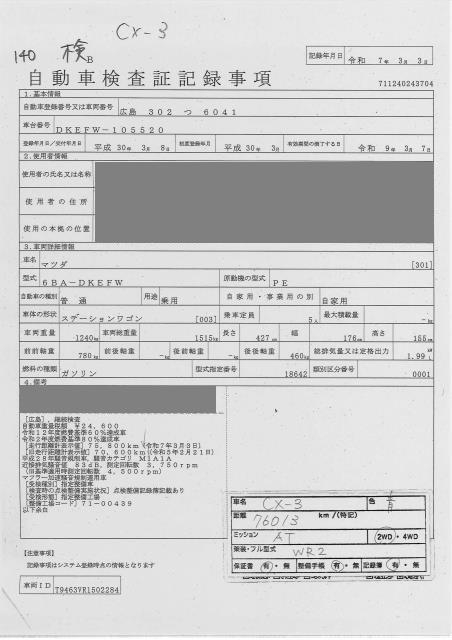 CX-3
140 検B
記録年月日 令和 7年 3月 3日
自動車検査証記録事項
711240243704
1.基本情報
自動車登録番号又は車両番号 広島 302 つ 6041
車台番号 DKEFW-105520
登録年月日/交付年月日 平成 30年 3月 8日 初度登録年月 平成 30年 3月 有効期間の満了する日 令和 9年 3月 7日
2.使用者情報
使用者の氏名又は名称
使用者の住所
使用の本拠の位置
3.車両詳細情報
車名 マツダ [301]
型式 6BA-DKEFW 原動機の型式 PE
自動車の種別 普通 用途 乗用 自家用・事業用の別 自家用
車体の形状 ステーションワゴン [003] 乗車定員 5人 最大積載量 -kg
車両重量 1240kg 車両総重量 1515kg 長さ 427cm 幅 176cm 高さ 155cm
前前軸重 780kg 前後軸重 -kg 後前軸重 -kg 後後軸重 460kg 総排気量又は定格出力 1.99 kW L
燃料の種類 ガソリン 型式指定番号 18642 類別区分番号 0001
4.備考
[広島],継続検査
自動車重量税額 ¥24,600
令和12年度燃費基準60%達成車
令和2年度燃費基準80%達成車
[走行距離計表示値] 75,800km(令和7年3月3日)
[旧走行距離計表示値] 70,600km(令和5年2月21日)
平成28年騒音規制車,騒音カテゴリ M1A1A
近接排気騒音値 83dB,測定回転数 3,750rpm
(旧基準適用時測定回転数 4,500rpm)
マフラー加速騒音規制適用車
[受検種別] 指定整備車
[検査時の点検整備実施状況] 点検整備記録簿記載あり
[受検形態] 指定整備工場
[整備工場コード] 71-00439
以下余白
車名 CX-3 色
距離 76013 km/(特記)
ミッション AT 2WD・4WD
架装・フル型式 WR2
保証書 有・無 整備手帳 有・無 記録簿 有・無
【注意事項】
記録事項はシステム登録時点の情報となります
車両ID T9463VR1502284